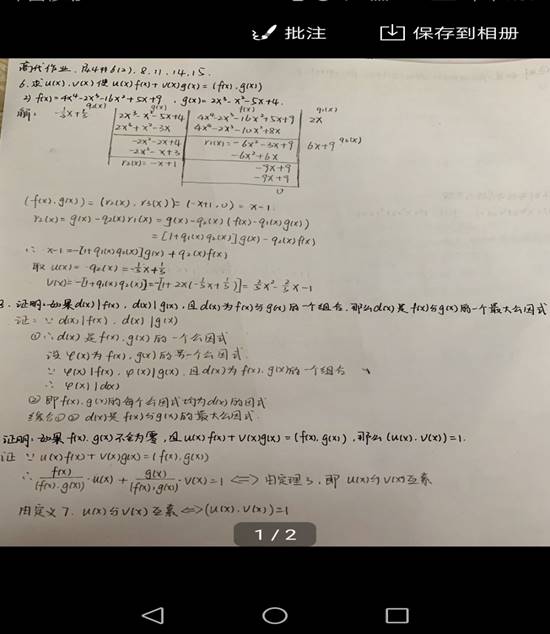 批注
保存到相册
高代作业 P44 # 6(2). 8. 11. 14. 15.
6. 求u(x). v(x)使 u(x)f(x)+v(x)g(x)=(f(x).g(x))
2) f(x)=4x⁴-2x³-16x²+5x+9 , g(x)=2x³-x²-5x+4.
解: -⅓x+⅓ q₂(x) g(x) f(x) q₁(x)
2x³-x²-5x+4 4x⁴-2x³-16x²+5x+9 2x
2x³+x²-3x 4x⁴-2x³-10x²+8x
-2x²-2x+4 r₁(x)=-6x²-3x+9 6x+9 q₃(x)
-2x²-x+3 -6x²+6x
r₂(x)=-x+1 -9x+9
-9x+9
0
(f(x).g(x))=(r₂(x).r₃(x))=(-x+1,0)=x-1
r₂(x)=g(x)-q₂(x)r₁(x)=g(x)-q₂(x)(f(x)-q₁(x)g(x))
=[1+q₁(x)q₂(x)]g(x)-q₂(x)f(x)
∴ x-1=-[1+q₁(x)q₂(x)]g(x)+q₂(x)f(x)
取 u(x)=-q₂(x)=-⅓x+⅓
v(x)=-[1+q₁(x)q₂(x)]=-[1+2x(-⅓x+⅓)]=⅔x²-⅔x-1
8. 证明:如果d(x)|f(x), d(x)|g(x),且d(x)为f(x)与g(x)的一个组合,那么d(x)是f(x)与g(x)的一个最大公因式
证: ∵ d(x)|f(x). d(x)|g(x)
① ∴ d(x)是f(x).g(x)的一个公因式
设φ(x)为f(x),g(x)的另一个公因式.
∵ φ(x)|f(x). φ(x)|g(x).且d(x)为f(x).g(x)的一个组合
∴ φ(x)|d(x)
② 即f(x).g(x)的每个公因式均为d(x)的因式
综合①② d(x)是f(x)与g(x)的最大公因式.
证明:如果f(x).g(x)不全为零,且u(x)f(x)+v(x)g(x)=(f(x).g(x)),那么(u(x).v(x))=1.
证 ∵ u(x)f(x)+v(x)g(x)=(f(x).g(x))
∴ f(x)/(f(x).g(x))·u(x)+g(x)/(f(x).g(x))·v(x)=1 <=> 由定理3,即u(x)与v(x)互素
由定义7. u(x)与v(x)互素<=>(u(x).v(x))=1
1 / 2